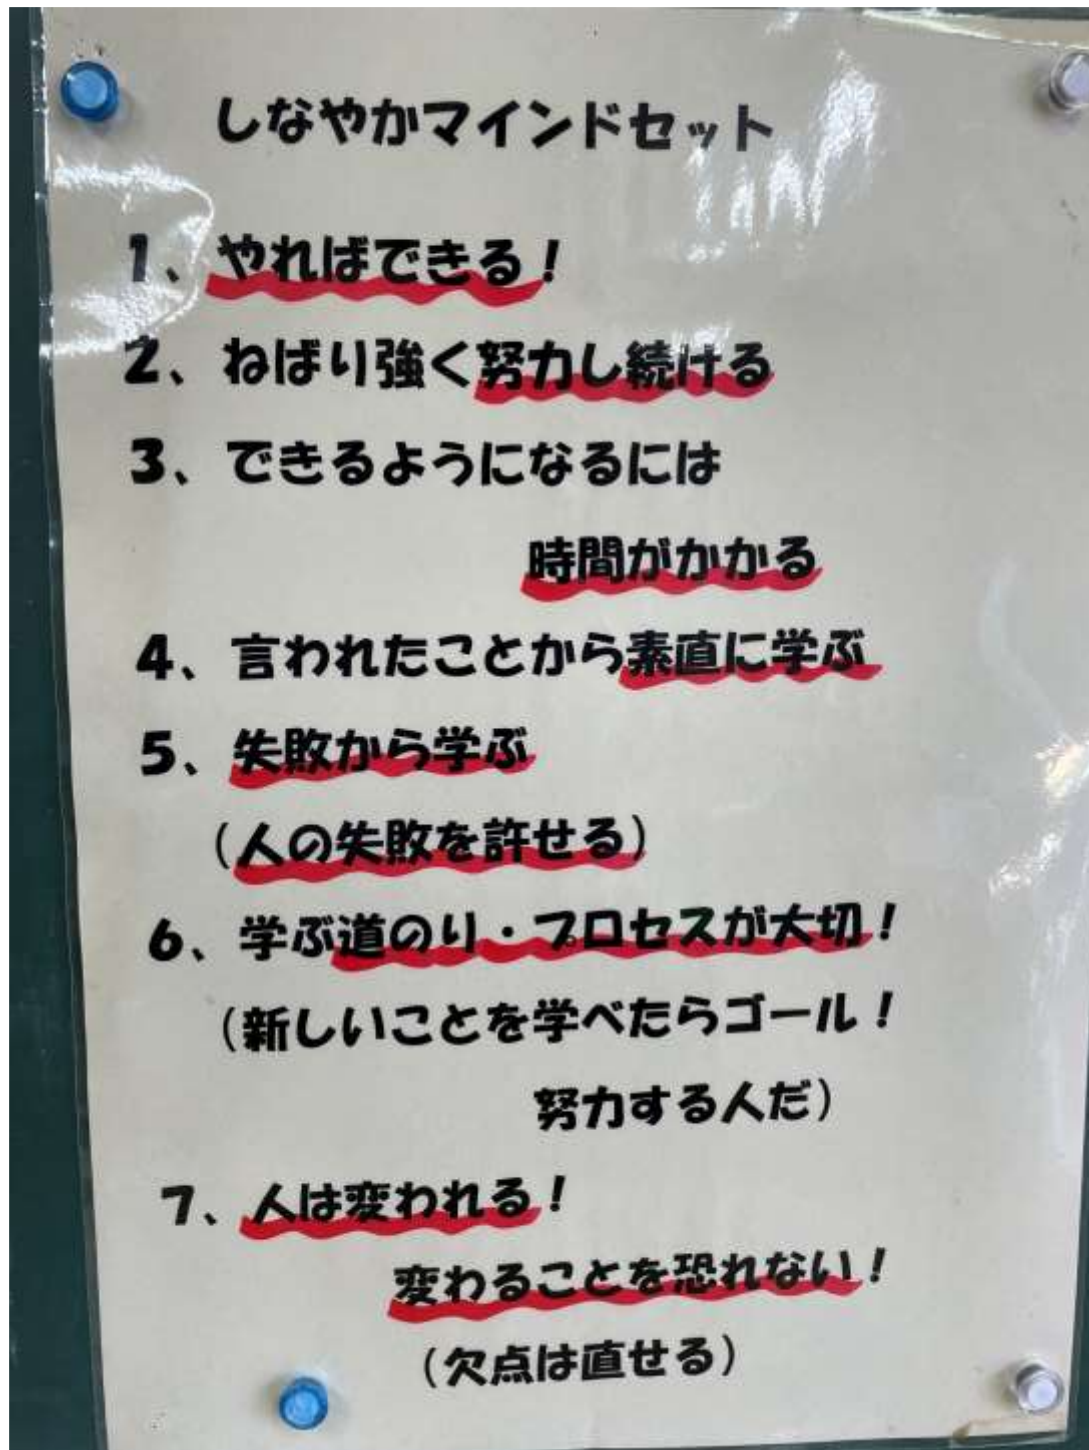 しなやかマインドセット
1、やればできる！
2、ねばり強く努力し続ける
3、できるようになるには
時間がかかる
4、言われたことから素直に学ぶ
5、失敗から学ぶ
（人の失敗を許せる）
6、学ぶ道のり・プロセスが大切！
（新しいことを学べたらゴール！
努力する人だ）
7、人は変われる！
変わることを恐れない！
（欠点は直せる）